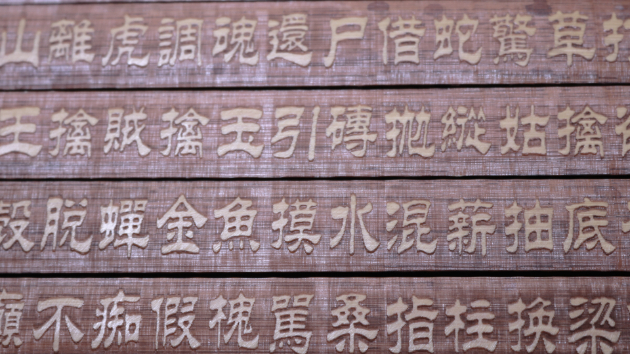 打草驚蛇借尸還魂調虎離山
擒姑縱拋磚引玉擒賊擒王
底抽薪混水摸魚金蟬脫殼
梁換柱指桑罵槐假痴不癲